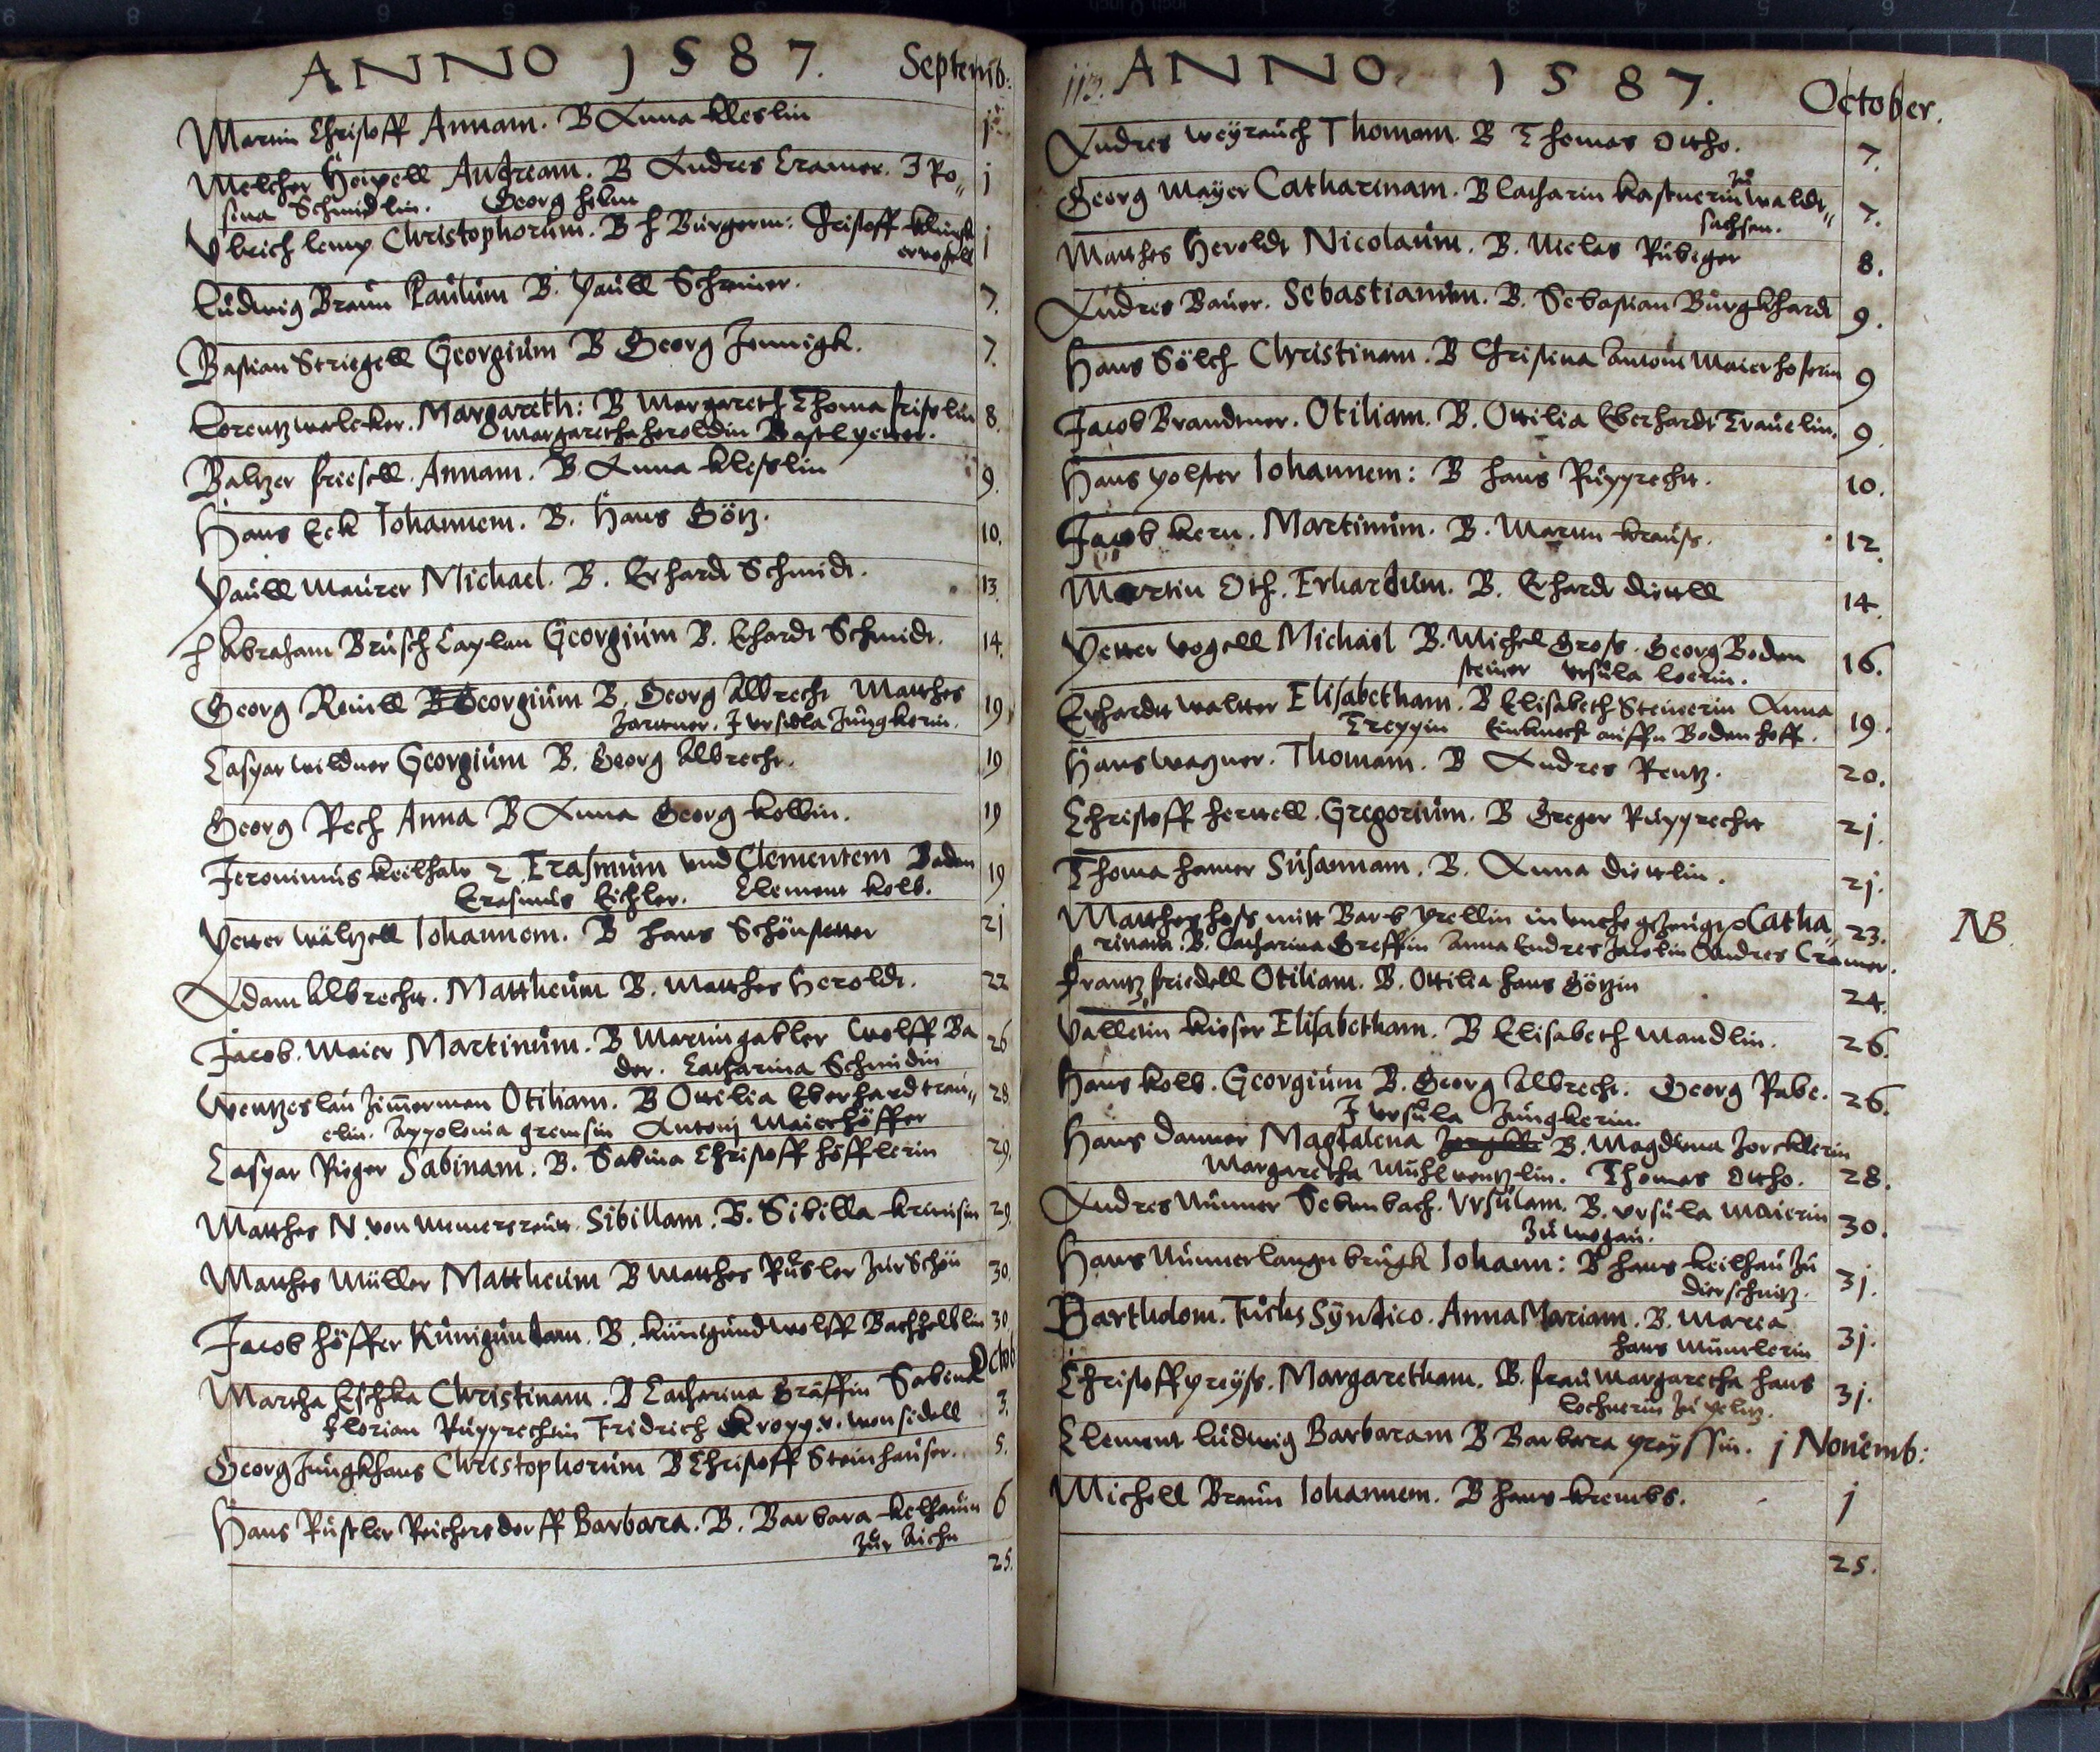 ANNO 1587. Septemb:
Martin Christoff Annam. B Anna kleslin 1
Melcher Heipell Andream. B Andres Cramer. J Ro„ j
sina Schmidlin. Georg Helm
Ulrich lemp Christophorum. B H Burgerm: Christoff j
Ludwig Braun Paulum B. Paull Schreiner. 7.
Bastian Striegell Georgium B Georg Jennigk. 7.
Lorentz Margareth: B Margareth Thoma 8.
Margaretha Heroldin Bastl peter.
Baltzer friesell. Annam. B. Anna kleslin 9.
Hans Eck Iohannem. B. Hans Götz. 10.
Paull Maurer Michael. B. Erhardt Schmidt. 13.
H Abraham Brusch Caplan Georgium B. Erhardt Schmidt. 14.
Georg Reinll Georgium B. Georg Albrecht Matthes 19
J Ursula Jungkerin.
Caspar wildner Georgium B. Georg Albrecht. 19
Georg Rech Anna B Anna Georg kollin. 19
Jeronimus keilhaw 2 Erasmum und Clementem Baden 19
Erasmus Eichler. Clement kolb.
Petter wältzell Iohannem. B hans Schönstetter 21
Adam Albrecht. Mattheum B. Matthes Heroldt. 22
Jacob Maier Martinum. B Martin gabler Wolff Ba 26
der. Catharina Schmidin
Wentzeslau Zimmerman Otiliam. B Ottilia Eberhard trau„ 28
elin. Appolonia gremsin Antonj Maierhöffer
Caspar Rieger Sabinam. B. Sabina Christoff höfflerin 29.
Matthes N. von Sibillam. B. Sibilla kremsin 29.
Matthes Müller Mattheum B Matthes Rusler zur Schön 30.
Jacob höffer Kunigundam. B. Kunigund wolff Bachhelblin 30.
Octob
Martha Eschka Christinam. B Catharina Gräffin Sabina
Florian Rupprechtin Fridrich kropp. v. wonsidell 3.
Georg Jungkhans Christophorum B Christoff Steinhauser. 5.
Hans Rustler Reichersdorff Barbara. B. Barbara kelhauin 6
zur Aichn
25.
113. ANNO 1587. October.
Andres Weyrauch Thomam. B Thomas Ottho. 7.
Georg Mayer Catharinam. B Catharin kastnerin zu waldt„ 7.
sachsen.
Matthes Heroldt Nicolaum. B. Niclas Rubiger 8.
Andres Bauer. Sebastianum. B. Sebastian Burgkhardt 9.
Hans Sölch Christinam. B Christina Antoni Maierhoferin 9
Jacob Brandtner. Otiliam. B. Ottilia Eberhardt Trauelin. 9.
Hans polster Iohannem: B hans Rupprecht. 10.
Jacob kern. Martinum. B. Martin krauss. 12.
Martin Oth. Erhardum. B. Erhardt diettll 14.
Petter vogell Michael B. Michel Gross. Georg Boden 16.
steiner Ursula
Erhardt waltter Elisabetham. B Elisabeth Steinerin Anna 19.
Treppin auffn Bodenhoff.
Hans Wagner. Thomam. B Andres Rentz. 20.
Christoff hertell. Gregorium. B Greger Rupprecht 21.
Thoma hamer Susannam. B. Anna diettlin. 21.
Matthes hoss mitt Barb prellin in unehe gezeugt Catha„ 23. NB.
rinam. B. Catharina Greffin Anna Endres Andres Cramer.
Frantz friedell Otiliam. B. Ottilia hans Götzin 24.
Valletin kieser Elisabetham. B Elisabeth Mandlin. 26.
Hans kolb. Georgium B. Georg Albrecht. Georg Rabe. 26.
J Ursula Jungkerin.
Hans danner Magdalena B. Magdlena Zorcklerin
Margaretha Muhlwentzlin. Thomas Ottho. 28.
Andres Nunner Sebenbach. Ursulam. B. Ursula Maierin 30.
zu wogau.
Hans Nunner langnbrugk Iohann: B hans keilhau zu 31.
dierschnitz.
Bartholom. Fuchs Syndico. Anna Mariam. B. Maria 31.
hans
Christoff preyss. Margaretham. B. frau Margaretha hans 31.
lochnerin zu
Clement ludwig Barbaram B Barbara preyssin. j Nouemb:
Michell Braun Iohannem. B hans krembs. j
25.